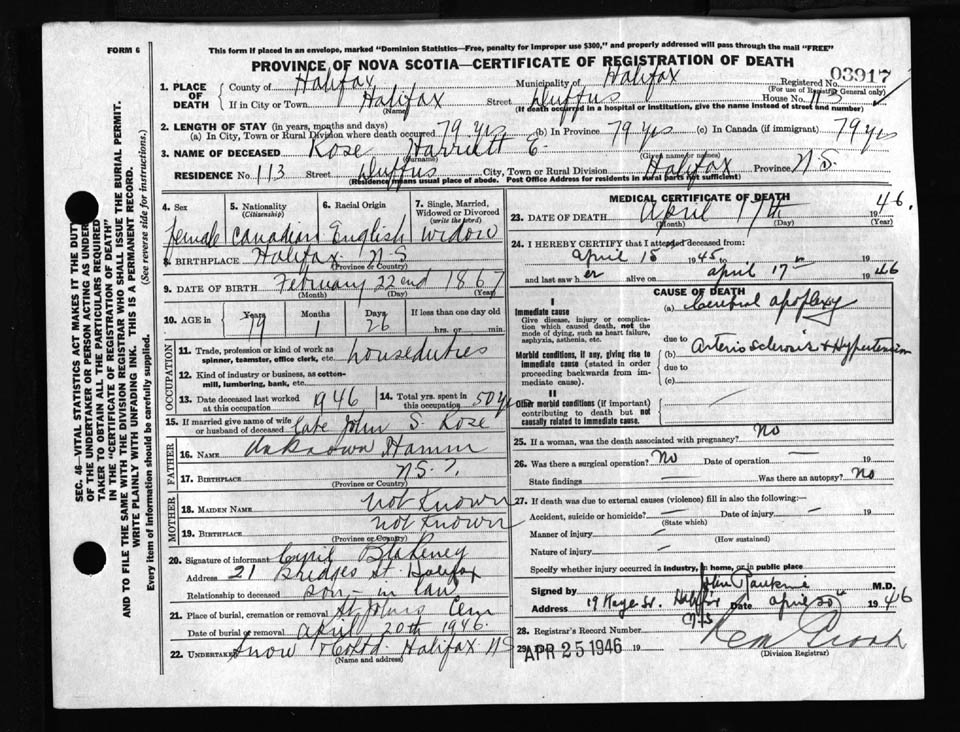 FORM 6
This form if placed in an envelope, marked "Dominion Statistics—Free, penalty for improper use $300," and properly addressed will pass through the mail "FREE"
PROVINCE OF NOVA SCOTIA—CERTIFICATE OF REGISTRATION OF DEATH
1. PLACE OF DEATH County of Halifax Municipality of Halifax Registered No. 03917
(For use of Registrar General only)
If in City or Town Halifax Street Duffus House No. 113
(Name) (If death occurred in a hospital or institution, give the name instead of street and number)
2. LENGTH OF STAY (in years, months and days)
(a) In City, Town or Rural Division where death occurred 79 yrs (b) In Province 79 yrs (c) In Canada (if immigrant) 79 yrs
3. NAME OF DECEASED Rose Harriett E.
(Surname) (Given name or names)
RESIDENCE No. 113 Street Duffus City, Town or Rural Division Halifax Province N.S.
(Residence means usual place of abode. Post Office Address for residents in rural parts not sufficient)
4. Sex 5. Nationality (Citizenship) 6. Racial Origin 7. Single, Married, Widowed or Divorced (write the word)
female Canadian English widow
8. BIRTHPLACE Halifax N.S
(Province or Country)
9. DATE OF BIRTH February 22nd 1867
(Month) (Day) (Year)
10. AGE in Years Months Days If less than one day old
79 1 26 hrs. or min.
OCCUPATION
11. Trade, profession or kind of work as spinner, teamster, office clerk, etc. houseduties
12. Kind of industry or business, as cotton-mill, lumbering, bank, etc.
13. Date deceased last worked at this occupation 1946 14. Total yrs. spent in this occupation 50 yrs
15. If married give name of wife or husband of deceased Late John S. Rose
FATHER
16. Name Unknown Hamm
17. Birthplace N.S.
(Province or Country)
MOTHER
18. Maiden Name not known
19. Birthplace not known
(Province or Country)
20. Signature of informant Cyril Blakeney
Address 21 Bridges St. Halifax
Relationship to deceased son-in law
21. Place of burial, cremation or removal St Johns Cem
Date of burial or removal April 20th 1946.
22. Undertaker Snow & Co Ltd. Halifax NS
(Name and address)
MEDICAL CERTIFICATE OF DEATH
23. DATE OF DEATH April 17th 1946.
(Month) (Day) (Year)
24. I HEREBY CERTIFY that I attended deceased from:
April 15 1945 to
and last saw her alive on april 17th 1946
CAUSE OF DEATH
I
Immediate cause
Give disease, injury or complication which caused death, not the mode of dying, such as heart failure, asphyxia, asthenia, etc.
(a) Cerebral apoplexy
due to
Morbid conditions, if any, giving rise to immediate cause (stated in order proceeding backwards from immediate cause).
(b) Arterio sclerosis & Hypertension
due to
(c)
II
Other morbid conditions (if important) contributing to death but not causally related to immediate cause.
25. If a woman, was the death associated with pregnancy? No
26. Was there a surgical operation? No Date of operation — 19
State findings — Was there an autopsy? No
27. If death was due to external causes (violence) fill in also the following:—
Accident, suicide or homicide? — Date of injury — 19
(State which)
Manner of injury —
(How sustained)
Nature of injury —
Specify whether injury occurred in industry, in home, or in public place
Signed by John M.D.
Address 19 Kaye St. Halifax Date april 20 1946
N.S
28. Registrar's Record Number
29. APR 25 1946 19
(Division Registrar)
SEC. 46—VITAL STATISTICS ACT MAKES IT THE DUTY OF THE UNDERTAKER OR PERSON ACTING AS UNDERTAKER TO OBTAIN ALL THE PARTICULARS REQUIRED IN THE "CERTIFICATE OF REGISTRATION OF DEATH" AND TO FILE THE SAME WITH THE DIVISION REGISTRAR WHO SHALL ISSUE THE BURIAL PERMIT.
WRITE PLAINLY WITH UNFADING INK. THIS IS A PERMANENT RECORD.
Every item of information should be carefully supplied. (See reverse side for instructions.)